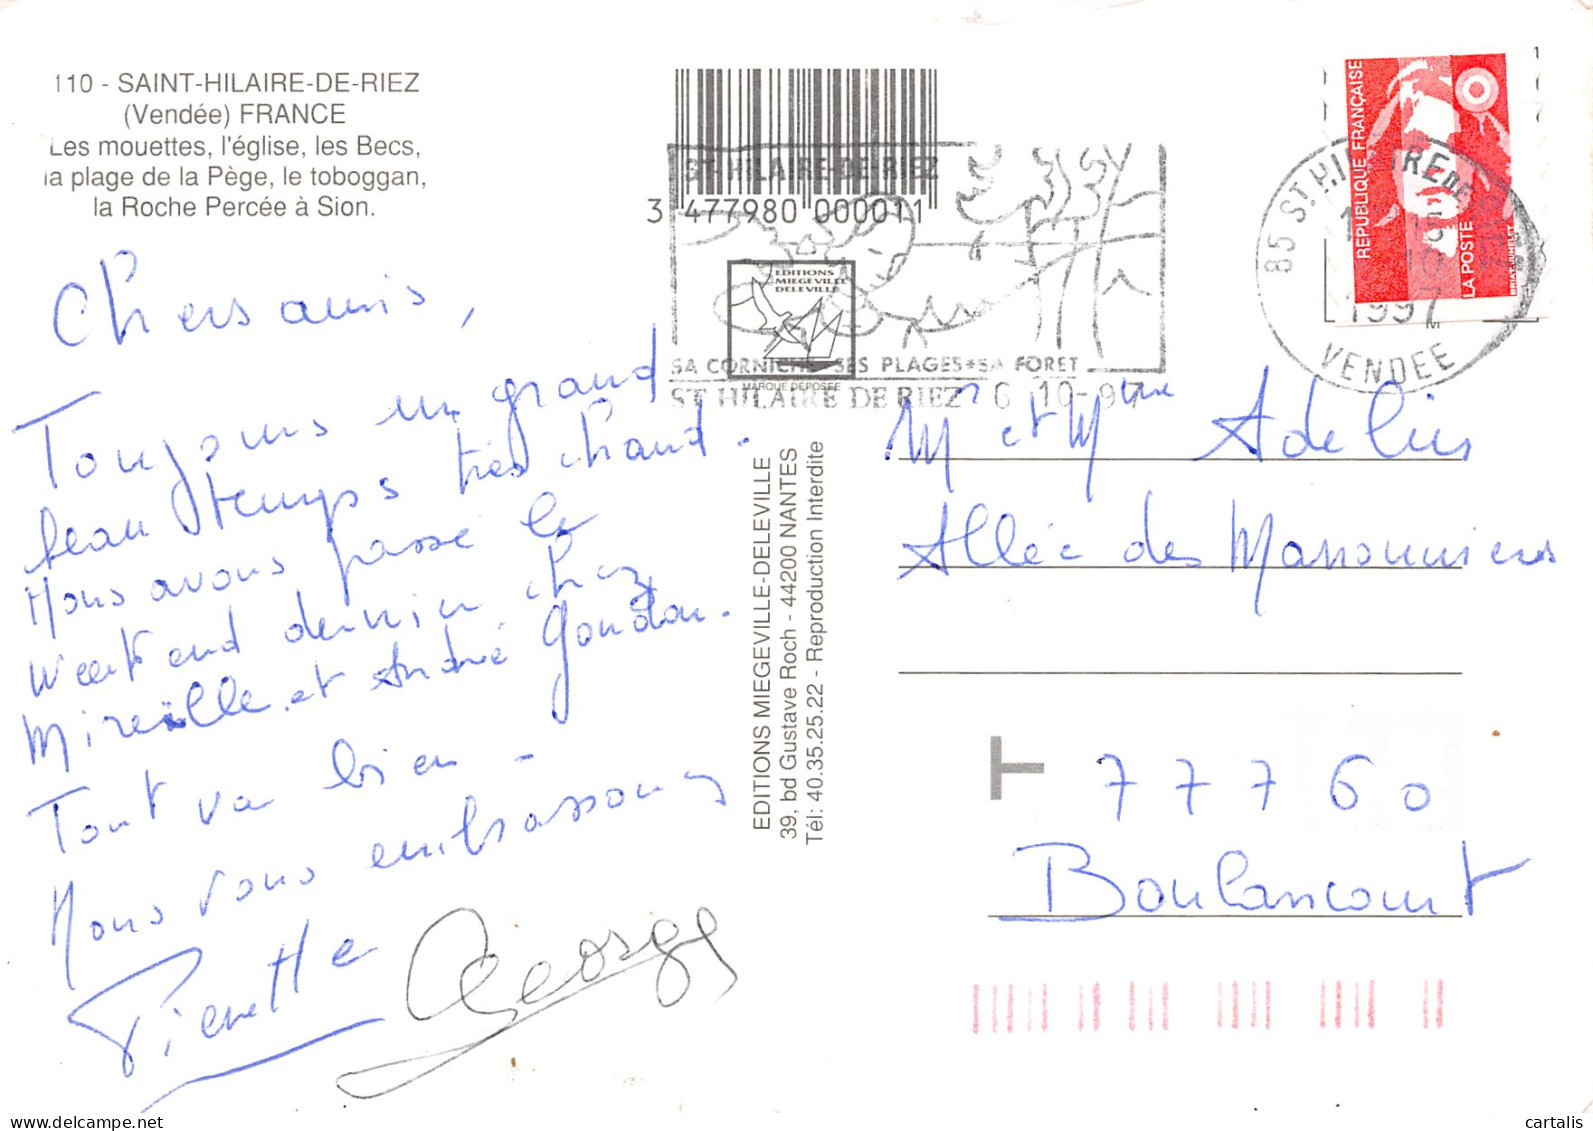 110 - SAINT-HILAIRE-DE-RIEZ
(Vendée) FRANCE
Les mouettes, l'église, les Becs,
la plage de la Pège, le toboggan,
la Roche Percée à Sion.
Chers amis,
Toujours un grand
beau temps très chaud.
Nous avons passé le
week end dernier chez
Mireille et André Goudon.
Tout va bien -
Nous vous embrassons
Pierrette Georges
3 477980 000011
ST-HILAIRE-DE-RIEZ
EDITIONS
MIEGEVILLE
DELEVILLE
MARQUE DEPOSEE
SA CORNICHE SES PLAGES * SA FORET
ST HILAIRE DE RIEZ 6 10-97
EDITIONS MIEGEVILLE-DELEVILLE
39, bd Gustave Roch - 44200 NANTES
Tél: 40.35.25.22 - Reproduction Interdite
REPUBLIQUE FRANÇAISE
LA POSTE
85 ST HILAIRE DE RIEZ
1997
VENDEE
Mr et Mme Adelin
Allée des
T
77760
Boulancourt
delcampe.net
cartalis